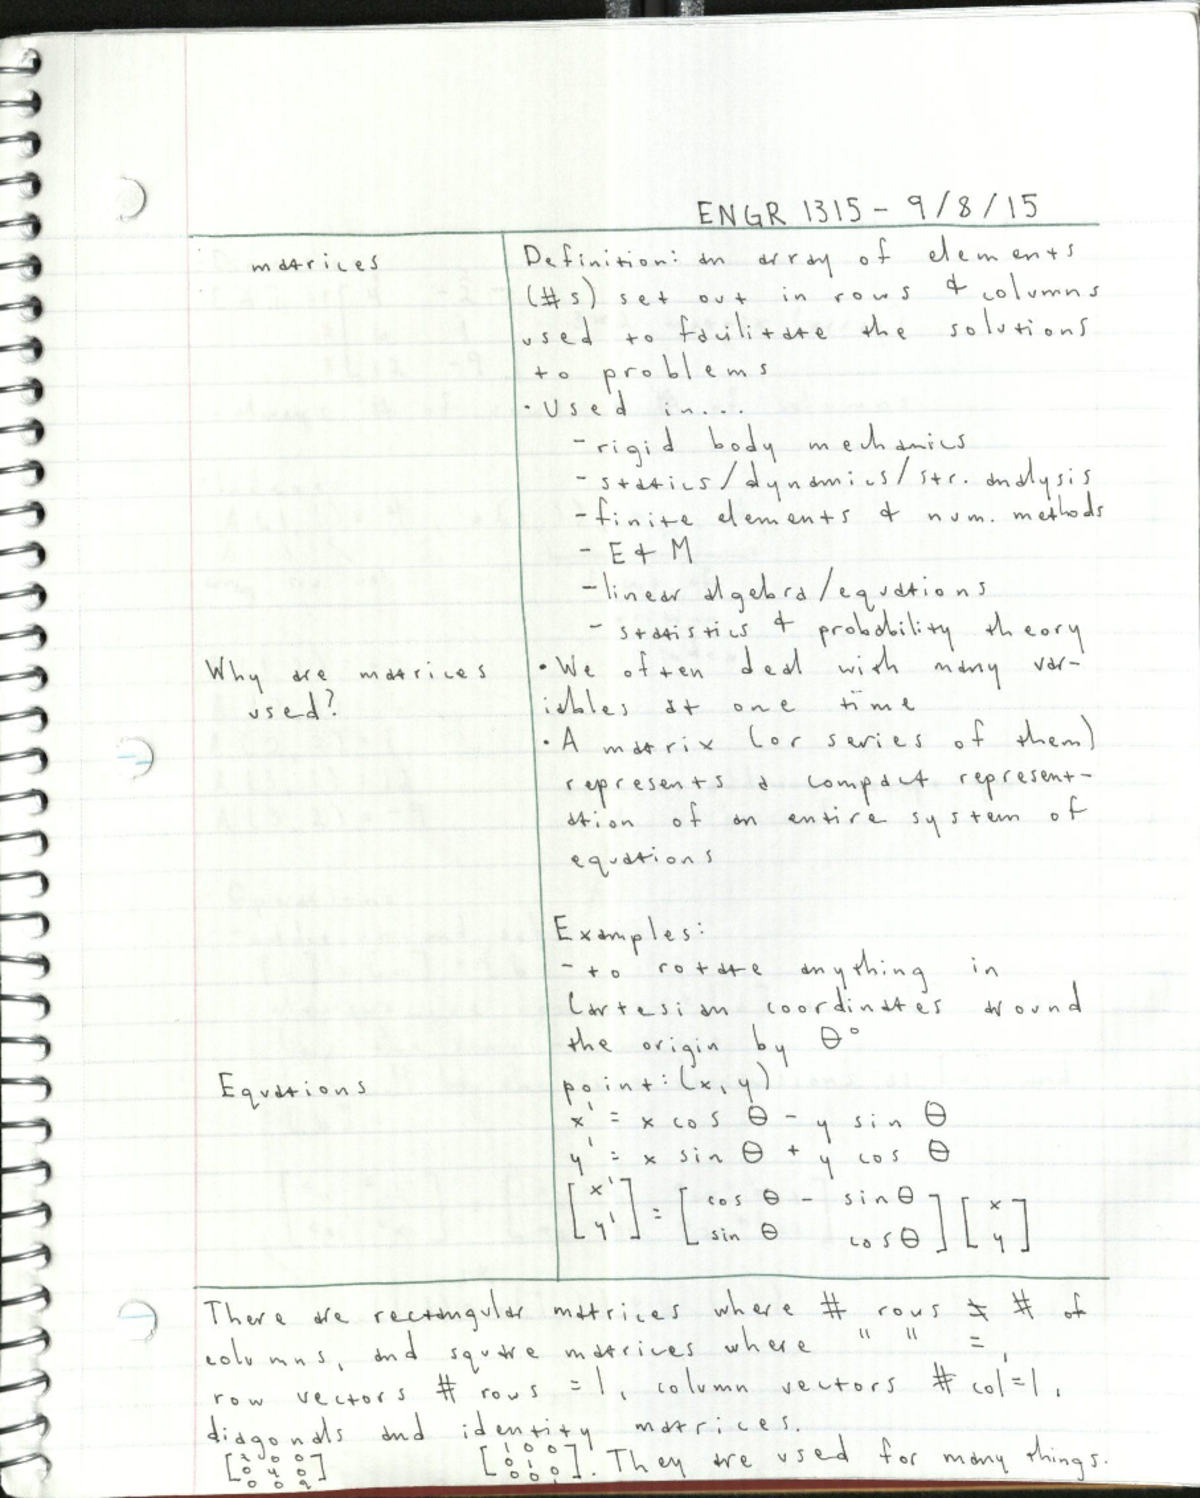 ENGR 1315 - 9/8/15
matrices
Definition: an array of elements
(#s) set out in rows & columns
used to facilitate the solutions
to problems
• Used in...
- rigid body mechanics
- statics/dynamics/str. analysis
- finite elements & num. methods
- E & M
- linear algebra/equations
- statistics & probability theory
Why are matrices
used?
• We often deal with many var-
iables at one time
• A matrix (or series of them)
represents a compact represent-
ation of an entire system of
equations
Examples:
- to rotate anything in
Cartesian coordinates around
the origin by θ°
Equations
point: (x, y)
x' = x cos θ - y sin θ
y' = x sin θ + y cos θ
[x' y'] = [cos θ - sin θ sin θ cos θ] [x y]
There are rectangular matrices where # rows ≠ # of
columns, and square matrices where " " =,
row vectors # rows = 1, column vectors # col = 1,
diagonals and identity matrices.
[0 0 0 4 0 0 0 9] [1 0 0 0 1 0 0 0 1]. They are used for many things.